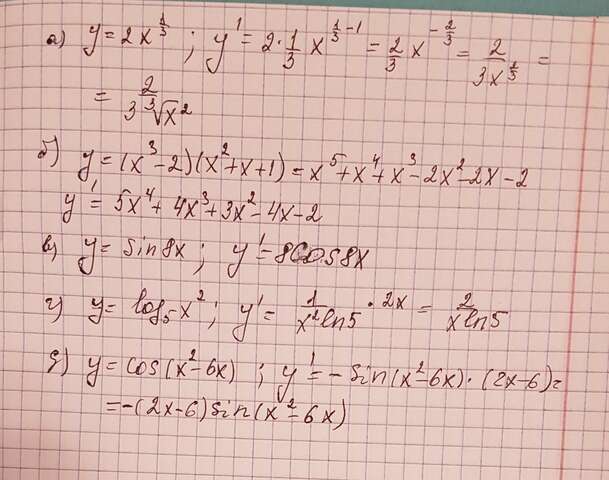 а) y = 2x^{1/3} ; y' = 2·1/3 x^{1/3 - 1} = 2/3 x^{-2/3} = 2/(3x^{2/3}) =
= 2/(3∛x²)
б) y = (x³-2)(x²+x+1) = x⁵+x⁴+x³-2x²-2x-2
y' = 5x⁴+4x³+3x²-4x-2
в) y = sin8x ; y' = 8cos8x
г) y = log₅x² ; y' = 1/(x²ln5) · 2x = 2/(xln5)
д) y = cos(x²-6x) ; y' = -sin(x²-6x)·(2x-6)=
= -(2x-6)sin(x²-6x)